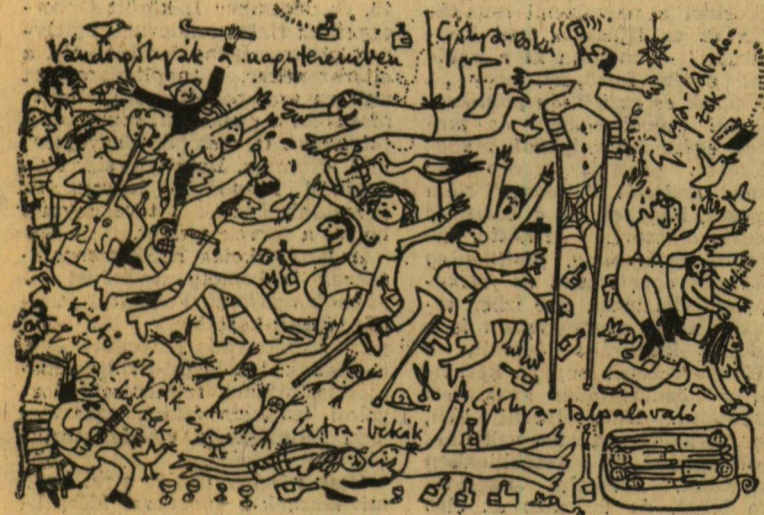 Vándorgólyák a nagyteremben
Gólya-eskü
Gólya-lábadozók
Költő gólyák és költők
Extra-békák
Gólya-talpalávaló